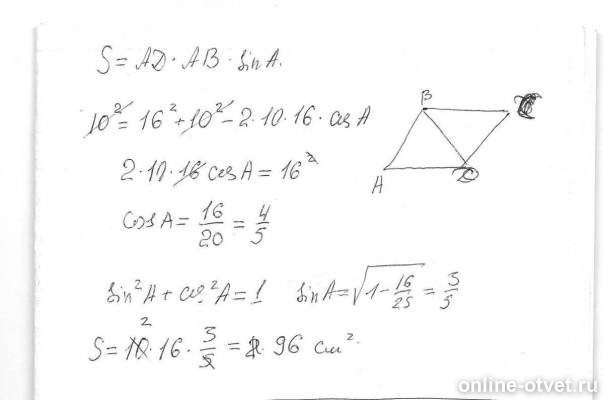 S = AD · AB · sin A.
10² = 16² + 10² - 2·10·16 · cos A
2·10·16 cos A = 16²
cos A = 16/20 = 4/5
sin²A + cos²A = 1 sin A = √(1 - 16/25) = 3/5
S = 10 · 16 · 3/5 = 96 cm²
2
B
A
D
online-otvet.ru